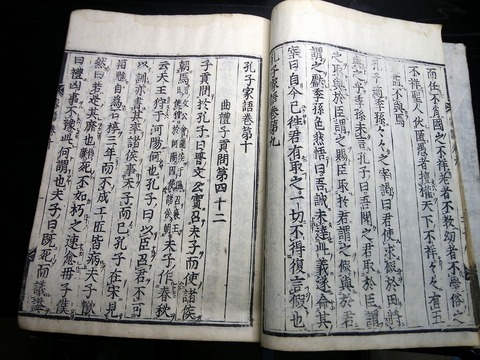 而任不肖國之不祥老者不教幼者不學俗之
不祥聖人伏匿愚者擅權天下不祥々々有五
益不與焉
孔子適季孫々々之宰謁曰君使求假於田將
與之乎季孫未言孔子曰吾聞之君取於臣謂
之取與於臣謂之賜臣取於君謂之假與於君
謂之獻季孫色然悟曰吾誠未達此義遂命其
宰曰自今已徃君有取之一切不得復言假也
孔子家語卷第九
孔子家語卷第十
曲禮子貢問第四十二
子貢問於孔子曰晉文公實召天子而使諸侯
朝焉夫子作春秋
云天王狩于河陽何也孔子曰以臣召君不可
以訓亦書其率諸侯事天子而已孔子在宋見
桓魋自為石椁三年而不成工匠皆病夫子愀
然曰若是其靡也靡死不如朽之速愈冉子僕
曰禮凶事不豫此何謂也夫子曰既死而議謚